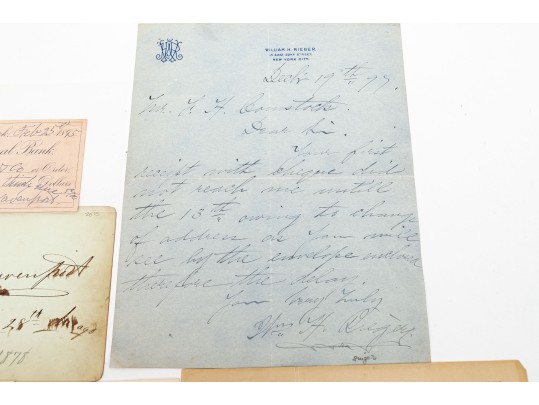 WILLIAM H. RIEGER
NEW YORK CITY
Dec'r 19th 97.
Mr. F. H. Comstock
Dear Sir.
Your first
receipt with cheque did
not reach me untill
the 13th. owing to change
of address as you will
see by the envelope
therefore the delay.
Yours very truly
Wm H. Rieger
Rieger
Feb 25th 1885
Bank
Dollars
28th
1878